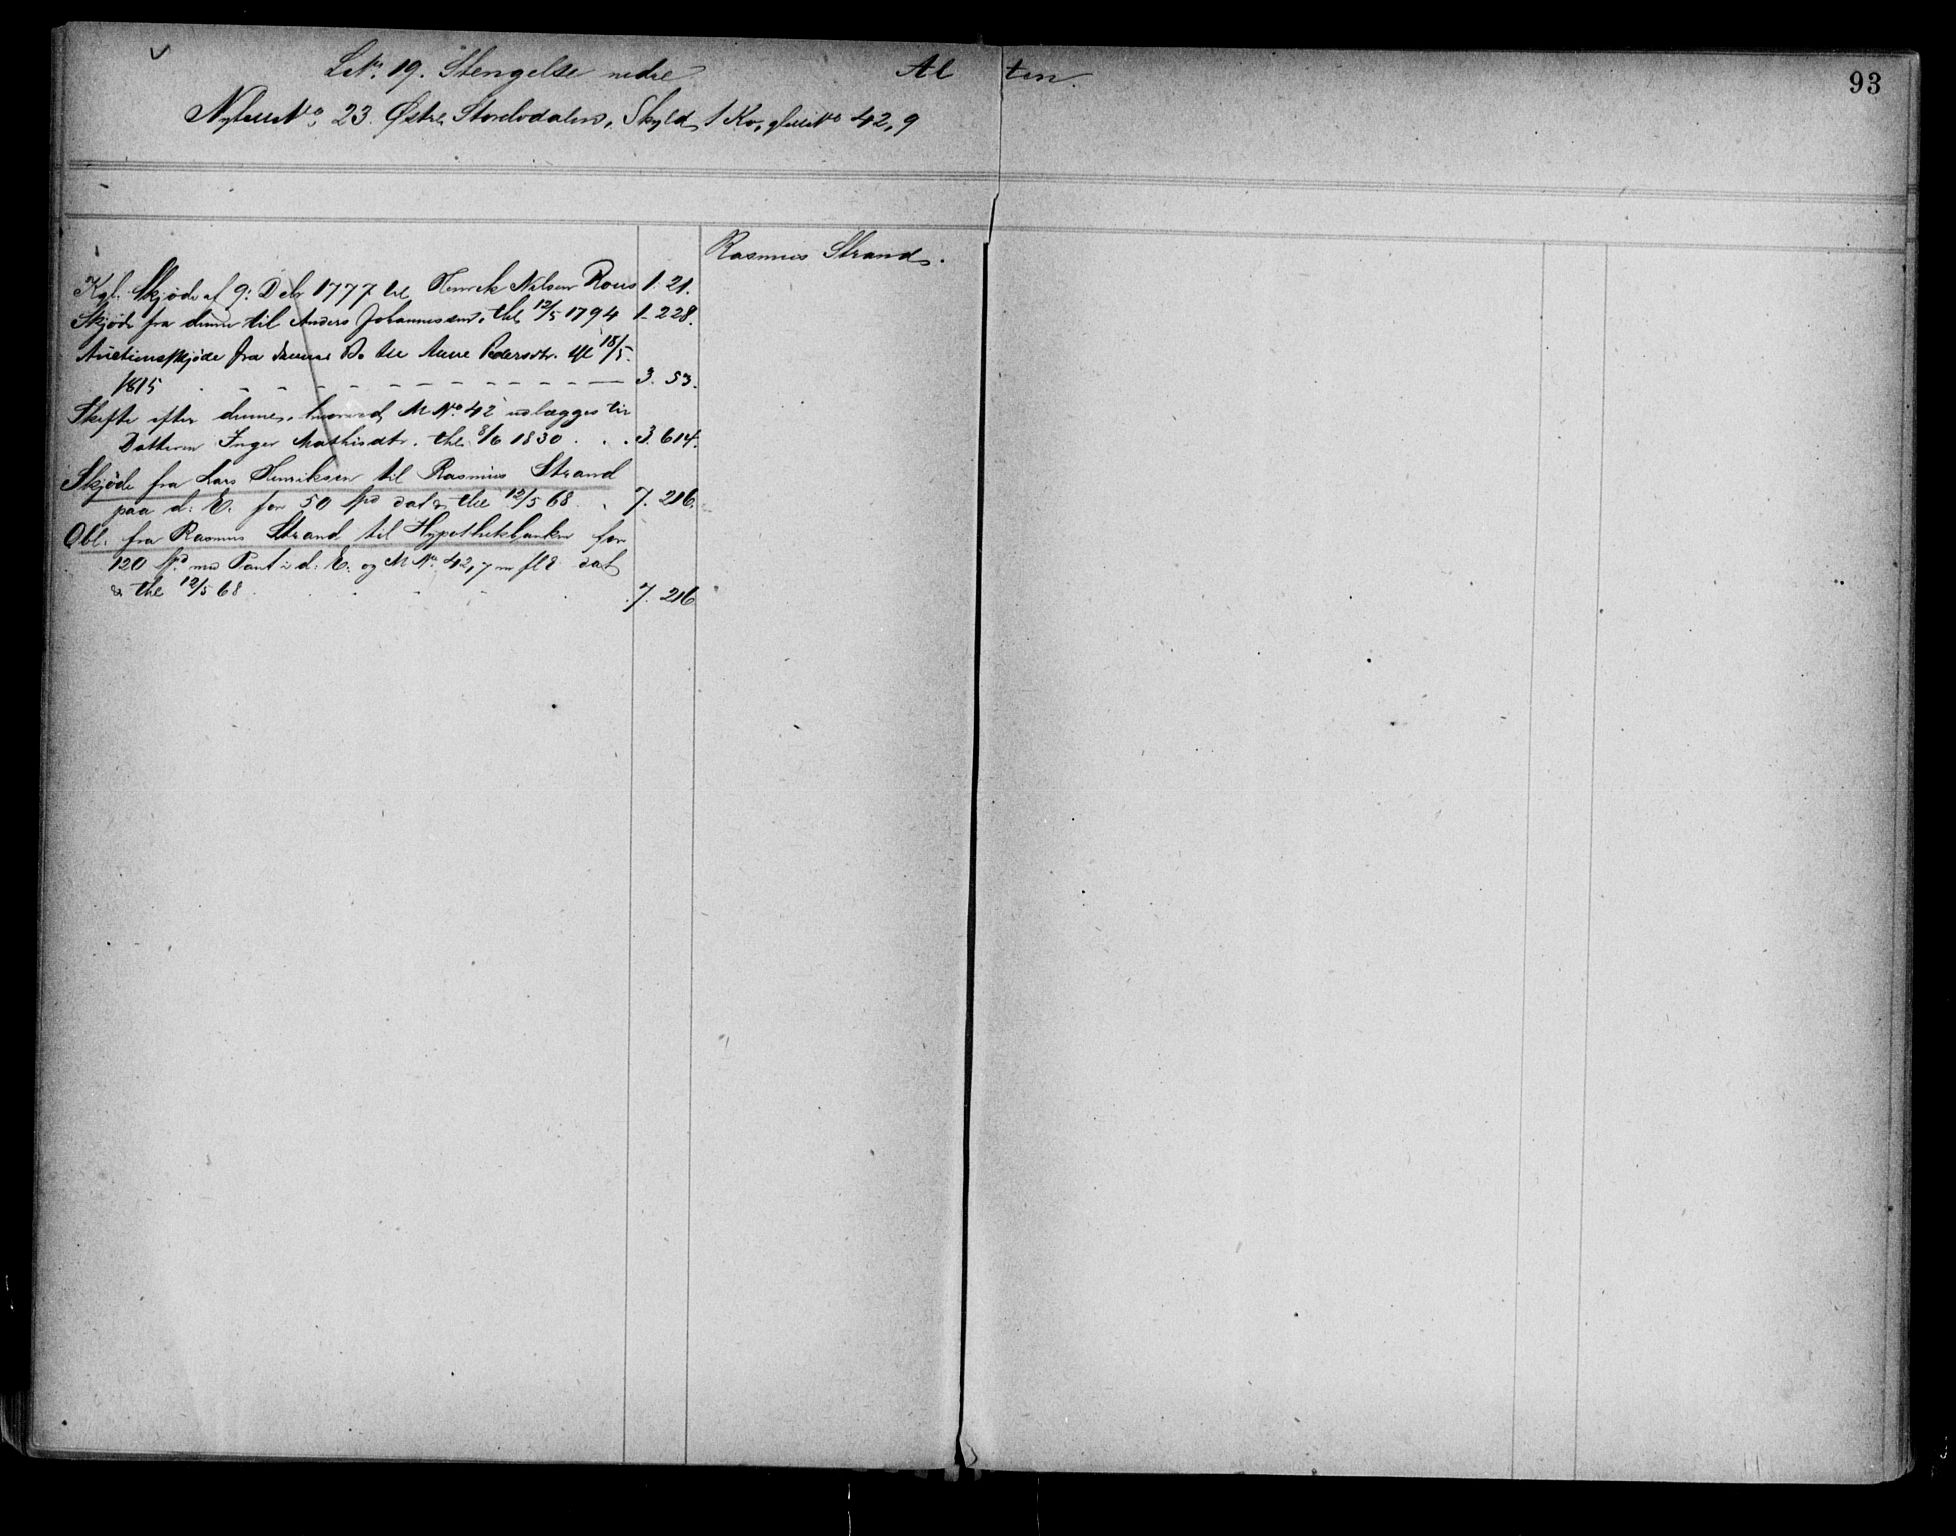 L.Nr. 19. Stengelse nedre Al ten.
93
Ny No 23. Østre Skyld, 1 Kr, 42,9
Rasmus Strand.
Kgl. Skjøde af 9: Debr 1777 til Henrik Nilsen 1. 21.
Skjøde fra denne til Anders Johannessen, thl. 12/5 1794 1. 228.
Auctionsskjøde fra dennes Bo til Anne Pedersdtr. thl 18/5.
1815 3. 53.
Skifte efter denne, hvorved M No. 42 udlægges til
Datteren Inger Mathisdtr. thl. 8/6 1830 . . . 3. 614.
Skjøde fra Lars Henriksen til Rasmus Strand
paa d: E. for 50 Spd dat & thl 12/5 68. . 7. 216.
Obl. fra Rasmus Strand til Hypothekbanken for
120 Spd. med Pant i d: E. og M No. 42, 7 m fl E dat
& thl 12/5 68 . . . . 7. 216